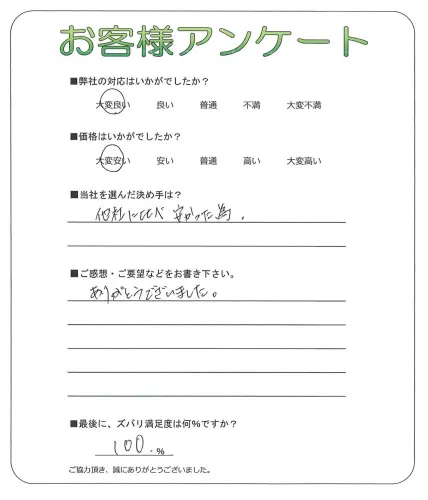 お客様アンケート
■弊社の対応はいかがでしたか？
大変良い 良い 普通 不満 大変不満
■価格はいかがでしたか？
大変安い 安い 普通 高い 大変高い
■当社を選んだ決め手は？
他社に比べ安かった為。
■ご感想・ご要望などをお書き下さい。
ありがとうございました。
■最後に、ズバリ満足度は何％ですか？
100.％
ご協力頂き、誠にありがとうございました。